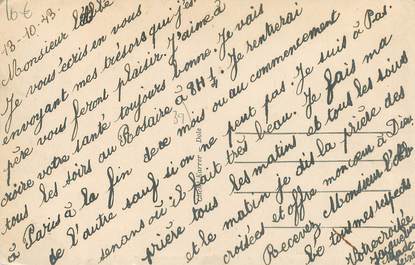 16€
13-10-43
Monsieur l'abbé
Je vous écris en vous
envoyant mes trésors qui j'es-
père vous feront plaisir. J'aime à
croire votre santé toujours bonne. Je vais
tous les soirs au Rosaire à 8H ¼. Je rentrerai
à Paris à la fin de ce mois ou au commencement
de l'autre sauf si on ne peut pas. Je suis à Pas.
senans où il fait très beau. Je fais ma
prière tous les matins et tous les soirs
et le matin je dis la prière des
croisées et offre mon cœur à Dieu.
Recevez Monsieur l'abbé
tous mes respects
Votre croisée
Karrer - Dole
39